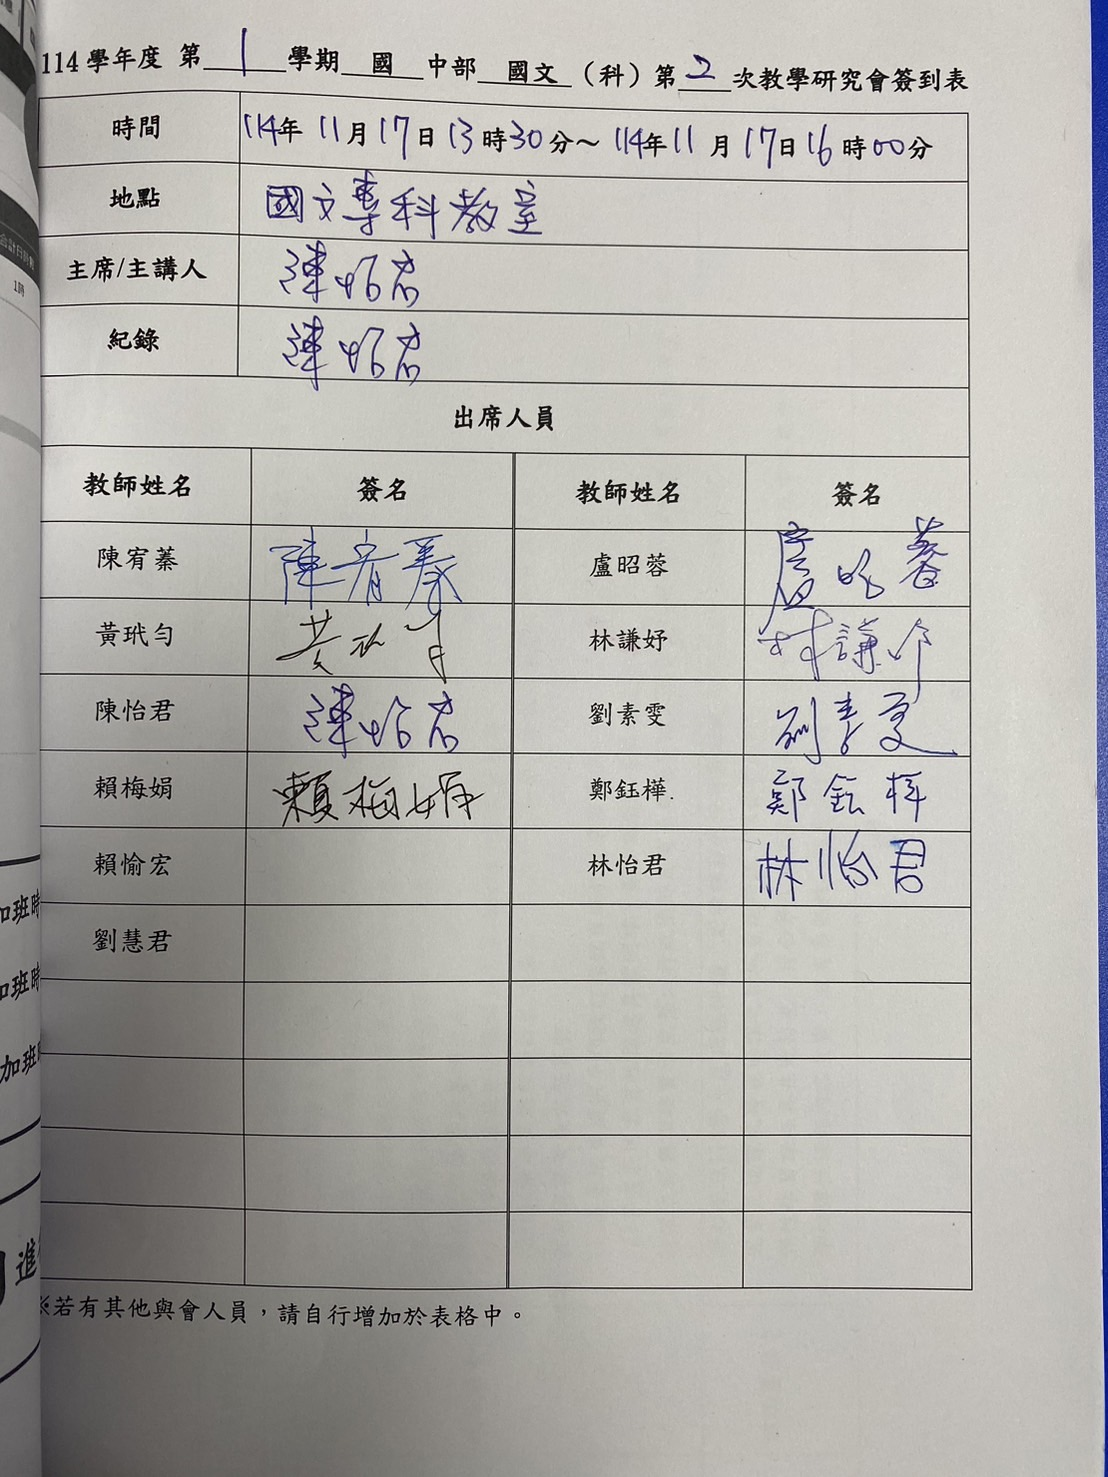 114學年度 第 1 學期 國 中部 國文 （科）第 2 次教學研究會簽到表
時間 114年 11月17日13時30分～114年11月17日16時00分
地點 國文專科教室
主席/主講人 陳怡君
紀錄 陳怡君
出席人員
教師姓名 簽名 教師姓名 簽名
陳宥蓁 陳宥蓁 盧昭蓉 盧昭蓉
黃玳勻 黃玳勻 林謙妤 林謙妤
陳怡君 陳怡君 劉素雯 劉素雯
賴梅娟 賴梅娟 鄭鈺樺. 鄭鈺樺
賴愉宏 林怡君 林怡君
劉慧君
※若有其他與會人員，請自行增加於表格中。
1時
加班時
加班時
加班
進